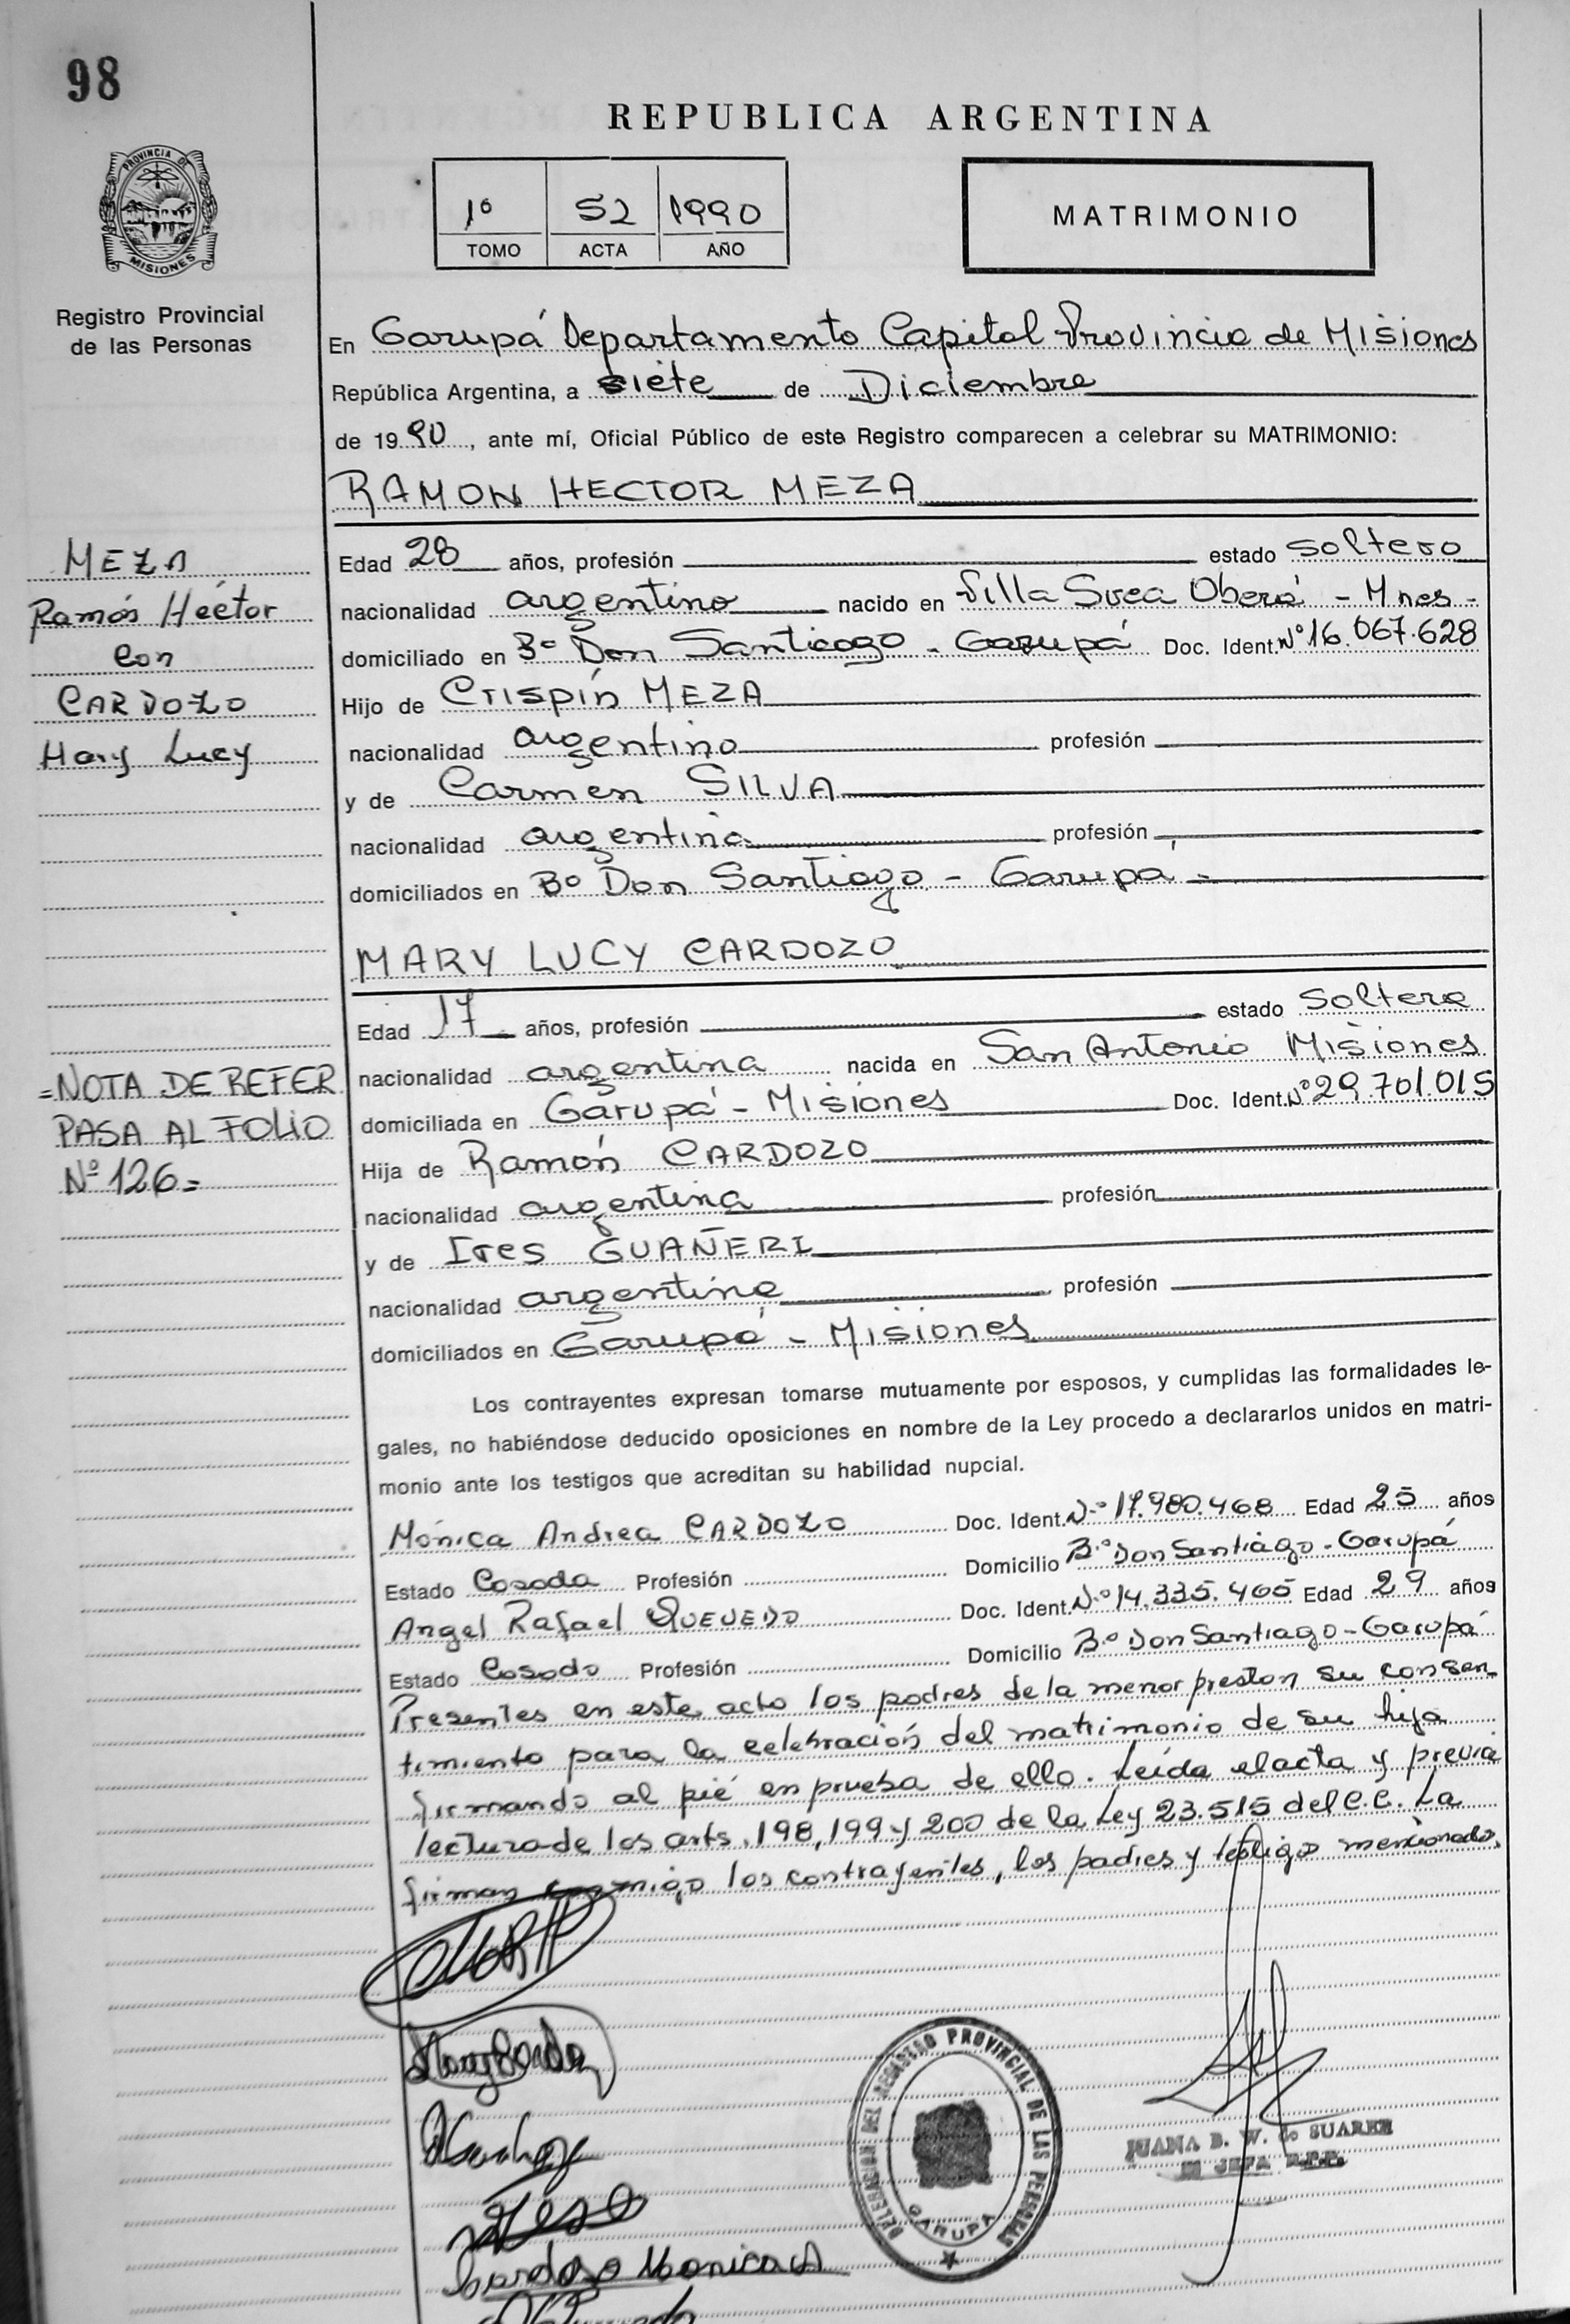 98
REPUBLICA ARGENTINA
PROVINCIA DE
MISIONES
1º 52 1990
TOMO ACTA AÑO
MATRIMONIO
Registro Provincial
de las Personas
En Garupá Departamento Capital Provincia de Misiones
República Argentina, a siete de Diciembre
de 1990, ante mí, Oficial Público de este Registro comparecen a celebrar su MATRIMONIO:
RAMON HECTOR MEZA
MEZA
Ramón Héctor
con
CARDOZO
Mary Lucy
Edad 28 años, profesión estado soltero
nacionalidad argentino nacido en Villa Svea Oberá - Mnes -
domiciliado en Bº Don Santiago - Garupá Doc. Ident. Nº 16.067.628
Hijo de Crispín MEZA
nacionalidad argentino profesión
y de Carmen SILVA
nacionalidad argentina profesión
domiciliados en Bº Don Santiago - Garupá -
MARY LUCY CARDOZO
Edad 17 años, profesión estado soltera
nacionalidad argentina nacida en San Antonio Misiones
domiciliada en Garupá - Misiones Doc. Ident. Nº 29.701.015
Hija de Ramón CARDOZO
nacionalidad argentina profesión
y de Ires GUAÑERI
nacionalidad argentina profesión
domiciliados en Garupá - Misiones
=NOTA DE REFER
PASA AL FOLIO
Nº 126=
Los contrayentes expresan tomarse mutuamente por esposos, y cumplidas las formalidades le-
gales, no habiéndose deducido oposiciones en nombre de la Ley procedo a declararlos unidos en matri-
monio ante los testigos que acreditan su habilidad nupcial.
Mónica Andrea CARDOZO Doc. Ident. Nº 17.980.468 Edad 25 años
Estado Casada Profesión Domicilio Bº Don Santiago - Garupá
Angel Rafael QUEVEDO Doc. Ident. Nº 14.335.465 Edad 29 años
Estado Casado Profesión Domicilio Bº Don Santiago - Garupá
Presentes en este acto los padres de la menor prestan su consen-
timiento para la celebración del matrimonio de su hija
firmando al pié en prueba de ello. Leída el acta y previa
lectura de los arts. 198, 199 y 200 de la Ley 23.515 del C.C. La
firman conmigo los contrayentes, los padres y testigo mencionado.
DELEGACION DEL REGISTRO PROVINCIAL DE LAS PERSONAS
GARUPA
JUANA B. W. de SUAREZ
JEFA R.P.P.
Cardozo Monica A